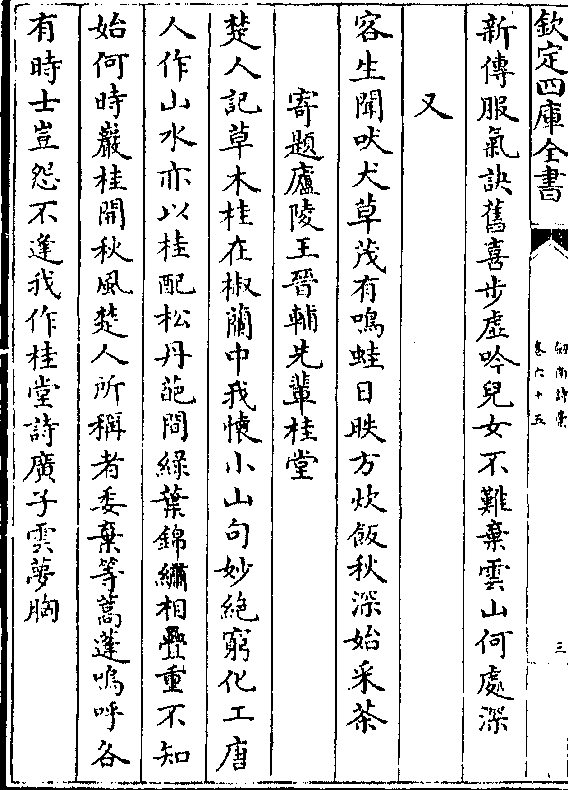 欽定四庫全書
劍南詩稾
卷六十五
三
新傳服氣訣舊喜步虛吟兒女不難棄雲山何處深
又
客生聞吠犬草茂有鳴蛙日昳方炊飯秋深始采茶
寄題廬陵王晉輔先輩桂堂
楚人記草木桂在椒蘭中我懐小山句妙絶窮化工唐
人作山水亦以桂配松丹葩間緑葉錦繡相疊重不知
始何時巖桂開秋風楚人所稱者委棄等蒿蓬嗚呼各
有時士豈怨不逢我作桂堂詩廣子雲夢胸